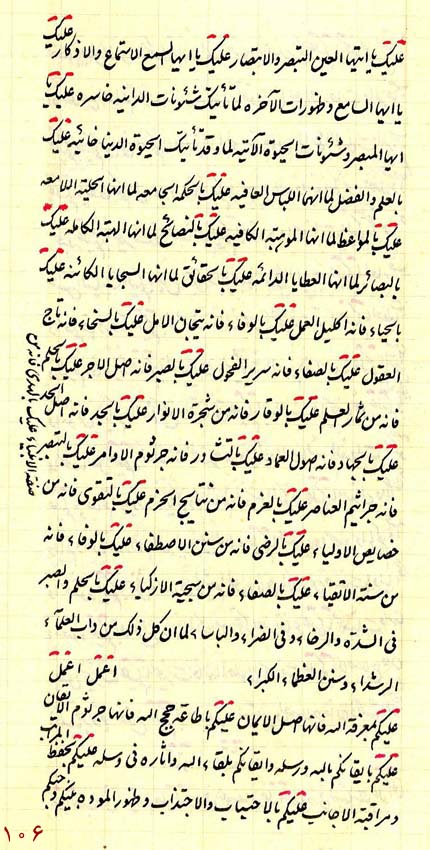 علیک یا ایتها العین التبصر والابتصار علیک یا ایها السمع الاستماع والاذکار علیک
یا ایها السامع وظهورات الآخره لما تأتیک شئونات الدانیه خاسره علیک یا
ایها المبصر وشئونات الحیوة الآتیه لما وقد تأتیک الحیوة الدنیا خائبه علیک
بالعلم والفضل لما انهما اللباس العافیه علیک بالحکمه الجامعه لما انها الحلیته اللامعه
علیک بالمواعظ لما انها الموهبته الکافیه علیک بالنصائح لما انها الهبته الکامله علیک
بالبصائر لما انها العطایا الدائمه علیک بالحقائق لما انها السجایا الکائنه علیک
بالحیاء فانه اکلیل العمل علیک بالوفاء فانه تیجان الامل علیک بالسخاء فانه تاج
العقول علیک بالصفاء فانه سریر الفحول علیک بالصبر فانه اصل الاجر علیک بالحلم
فانه من ثمار العلم علیک بالوقار فانه من شجرة الانوار علیک بالجد فانه اصل الجد
علیک بالجهاد فانه اصول العماد علیک بالتشاور فانه جرثوم الاوامر علیک بالتبصر
فانه جراثیم العناصر علیک بالعزم فانه من نتایج الحزم علیک بالتقوی فانه من
خصایص الاولیاء علیک بالرضی فانه من سنن الاصطفاء علیک بالوفاء فانه
من سنته الاتقیاء علیک بالصفاء فانه من سجیة الازکیاء علیک بالحلم والصبر
فی الشدة والرخاء وفی الضراء والباساء لما ان کل ذلک من داب العلمآء
الرشداء وسنن العظماء الکبراء اعمل اعمل
علیکم بمعرفة الله فانها اصل الایمان علیکم باطاعة حجج الله فانها جرثوم الایقان
علیکم بایقانکم بالله ورسله وایقانکم بلقاء الله وآثاره فی رسله علیکم بحفظ المراتب
ومراقبته الاجانب علیکم بالاحتساب والاجتذاب وظهور الموده بینکم
صفة الانبیاء علیک بالهدی فانه من
۱۰۶